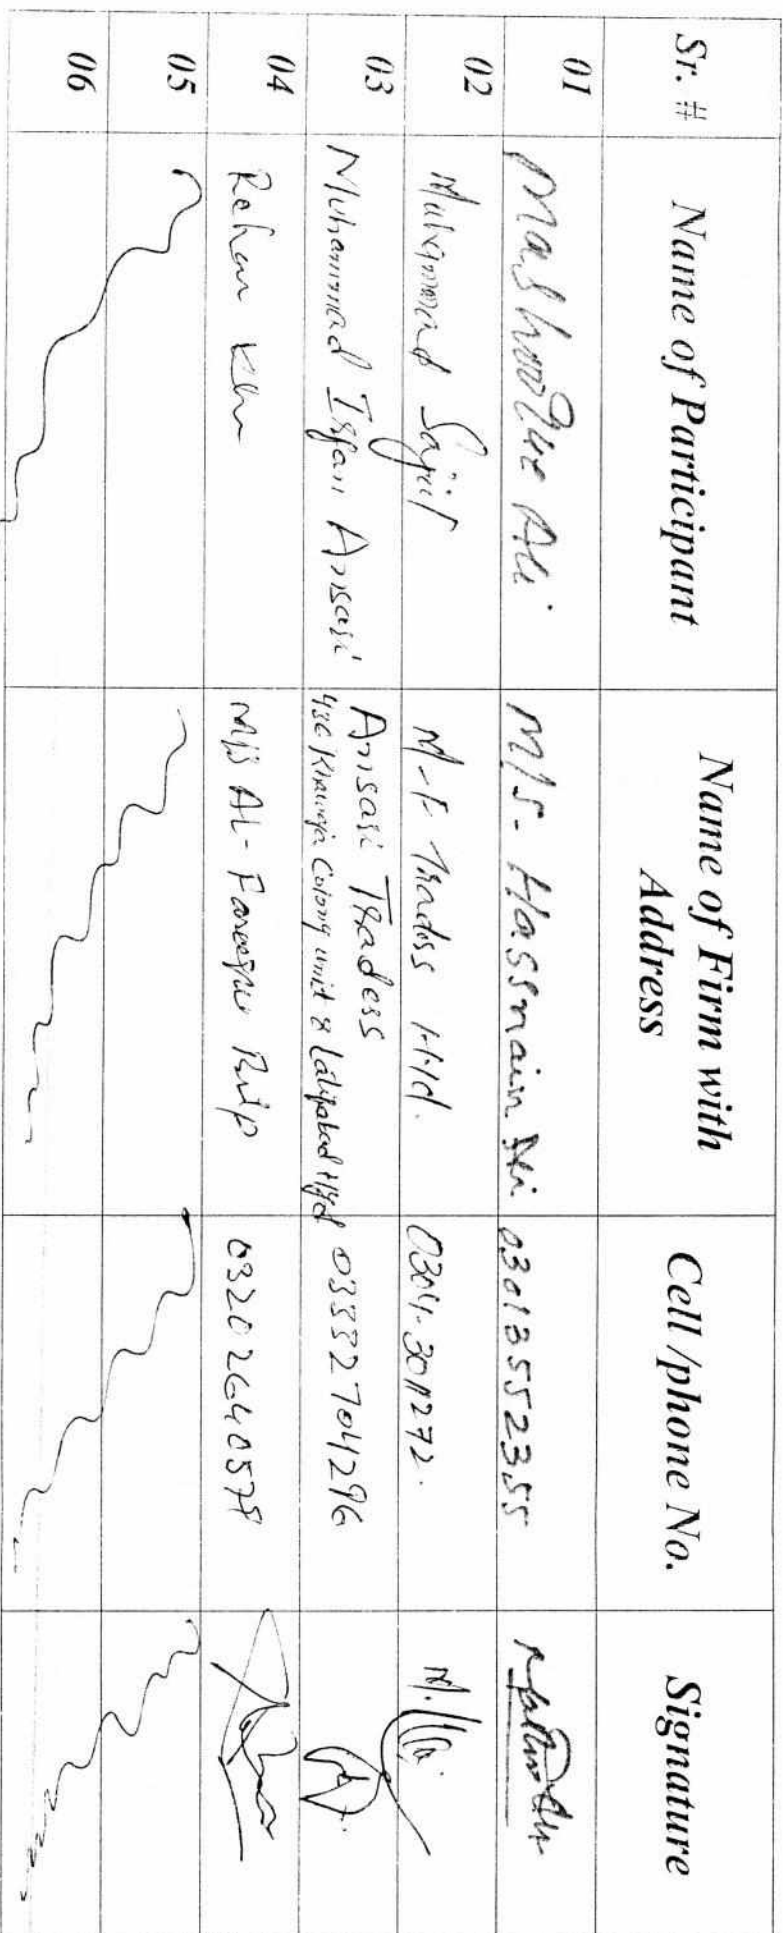 Sr. # Name of Participant Name of Firm with Address Cell /phone No. Signature
01 Mashooque Ali M/S. Hassnain Ali 03013552355
02 Muhammad Sajid M-F Traders Hyd. 0304-3011272.
03 Muhammad Irfan Ansari Ansari Traders 03332704296
436 Khawaja Colony unit 8 Latifabad Hyd
04 Rehan Khan M/S Al-Farooque 03202640578
05
06